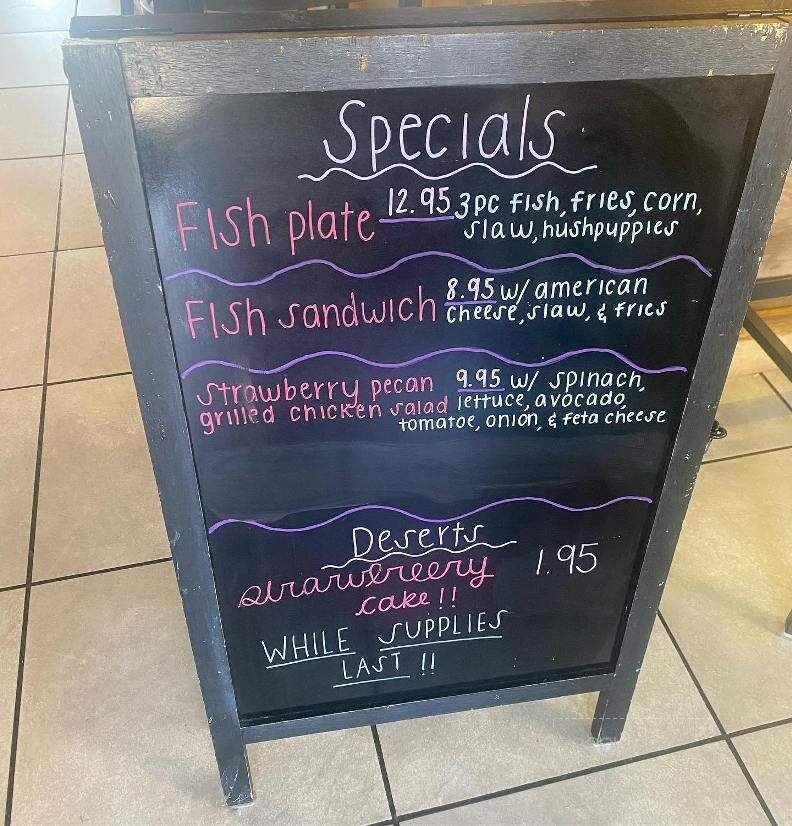 Specials
Fish plate 12.95 3pc fish, fries, corn,
slaw, hushpuppies
Fish sandwich 8.95 w/ american
cheese, slaw, & fries
strawberry pecan 9.95 w/ spinach,
grilled chicken salad lettuce, avocado,
tomatoe, onion, & feta cheese
Deserts
strawbreery 1.95
cake!!
WHILE SUPPLIES
LAST !!